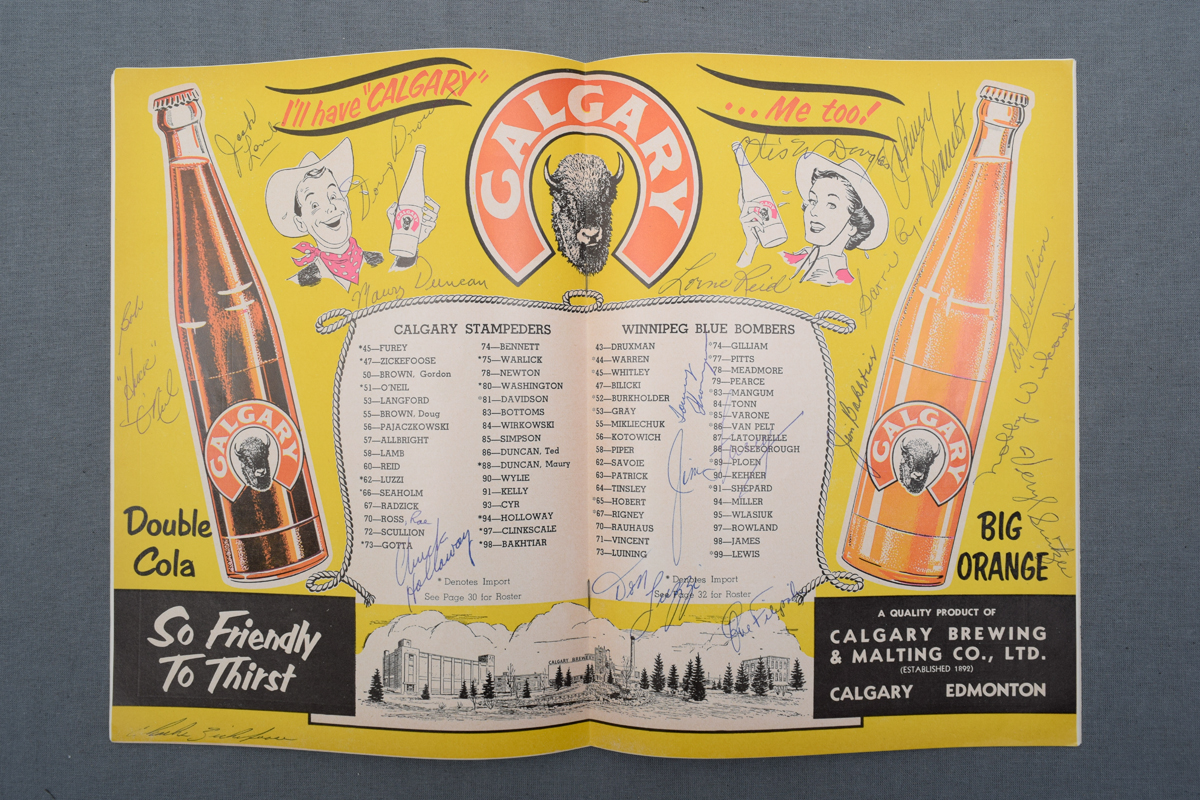 I'll have "CALGARY"
... Me too!
CALGARY
Jack
Otis M Douglas
Maury Duncan
Lorne Reid
CALGARY STAMPEDERS
*45—FUREY
*47—ZICKEFOOSE
50—BROWN, Gordon
*51—O'NEIL
53—LANGFORD
55—BROWN, Doug
56—PAJACZKOWSKI
57—ALLBRIGHT
58—LAMB
60—REID
*62—LUZZI
*66—SEAHOLM
67—RADZICK
70—ROSS, Rae
72—SCULLION
*73—GOTTA
74—BENNETT
*75—WARLICK
78—NEWTON
*80—WASHINGTON
*81—DAVIDSON
83—BOTTOMS
84—WIRKOWSKI
85—SIMPSON
86—DUNCAN, Ted
*88—DUNCAN, Maury
90—WYLIE
91—KELLY
93—CYR
*94—HOLLOWAY
*97—CLINKSCALE
*98—BAKHTIAR
* Denotes Import
See Page 30 for Roster
Chuck
Holloway
WINNIPEG BLUE BOMBERS
43—DRUXMAN
*44—WARREN
*45—WHITLEY
47—BILICKI
*52—BURKHOLDER
*53—GRAY
55—MIKLIECHUK
56—KOTOWICH
58—PIPER
62—SAVOIE
63—PATRICK
64—TINSLEY
*65—HOBERT
*67—RIGNEY
70—RAUHAUS
71—VINCENT
73—LUINING
*74—GILLIAM
*77—PITTS
*78—MEADMORE
79—PEARCE
*83—MANGUM
84—TONN
*85—VARONE
*86—VAN PELT
*87—LATOURELLE
*88—ROSEBOROUGH
*89—PLOEN
90—KEHRER
*91—SHEPARD
94—MILLER
95—WLASIUK
97—ROWLAND
98—JAMES
*99—LEWIS
* Denotes Import
See Page 32 for Roster
Jim
Don Luzzi
Bob
"Huck"
O'Neil
Jim Bakhtiar
CALGARY
CALGARY
Double
Cola
BIG
ORANGE
So Friendly
To Thirst
CALGARY BREWERY
A QUALITY PRODUCT OF
CALGARY BREWING
& MALTING CO., LTD.
(ESTABLISHED 1892)
CALGARY EDMONTON